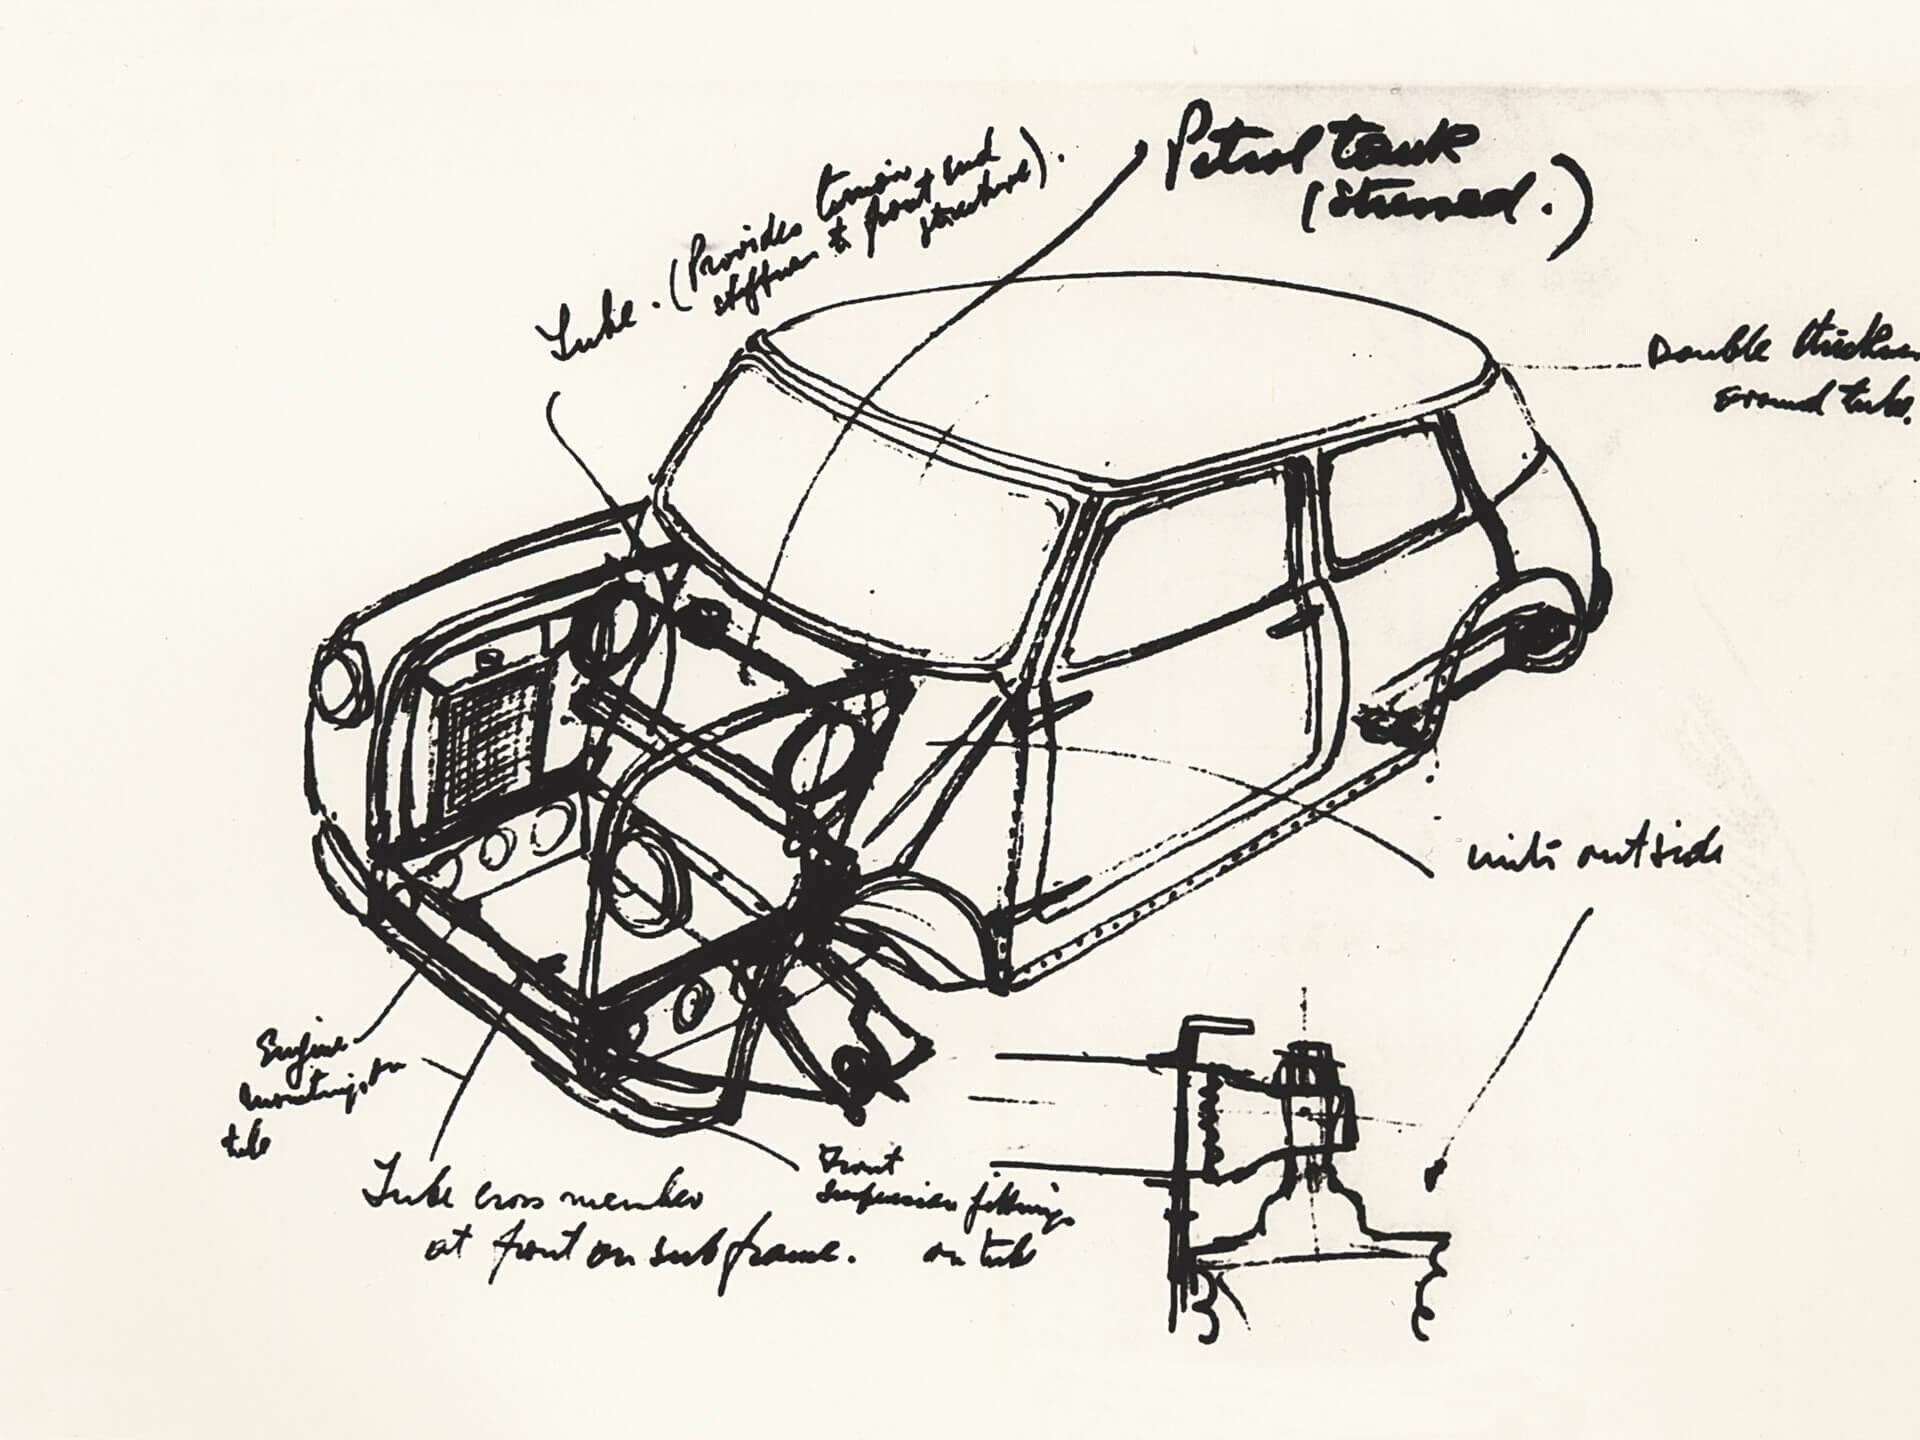 Petrol tank
(Stressed.)
Tube. (Provides torsion and
stiffness to front
structure).
Double thickness
around tube.
units outside
Engine
mountings on
tube
Tube cross member
at front on subframe.
Front
suspension fittings
on tube